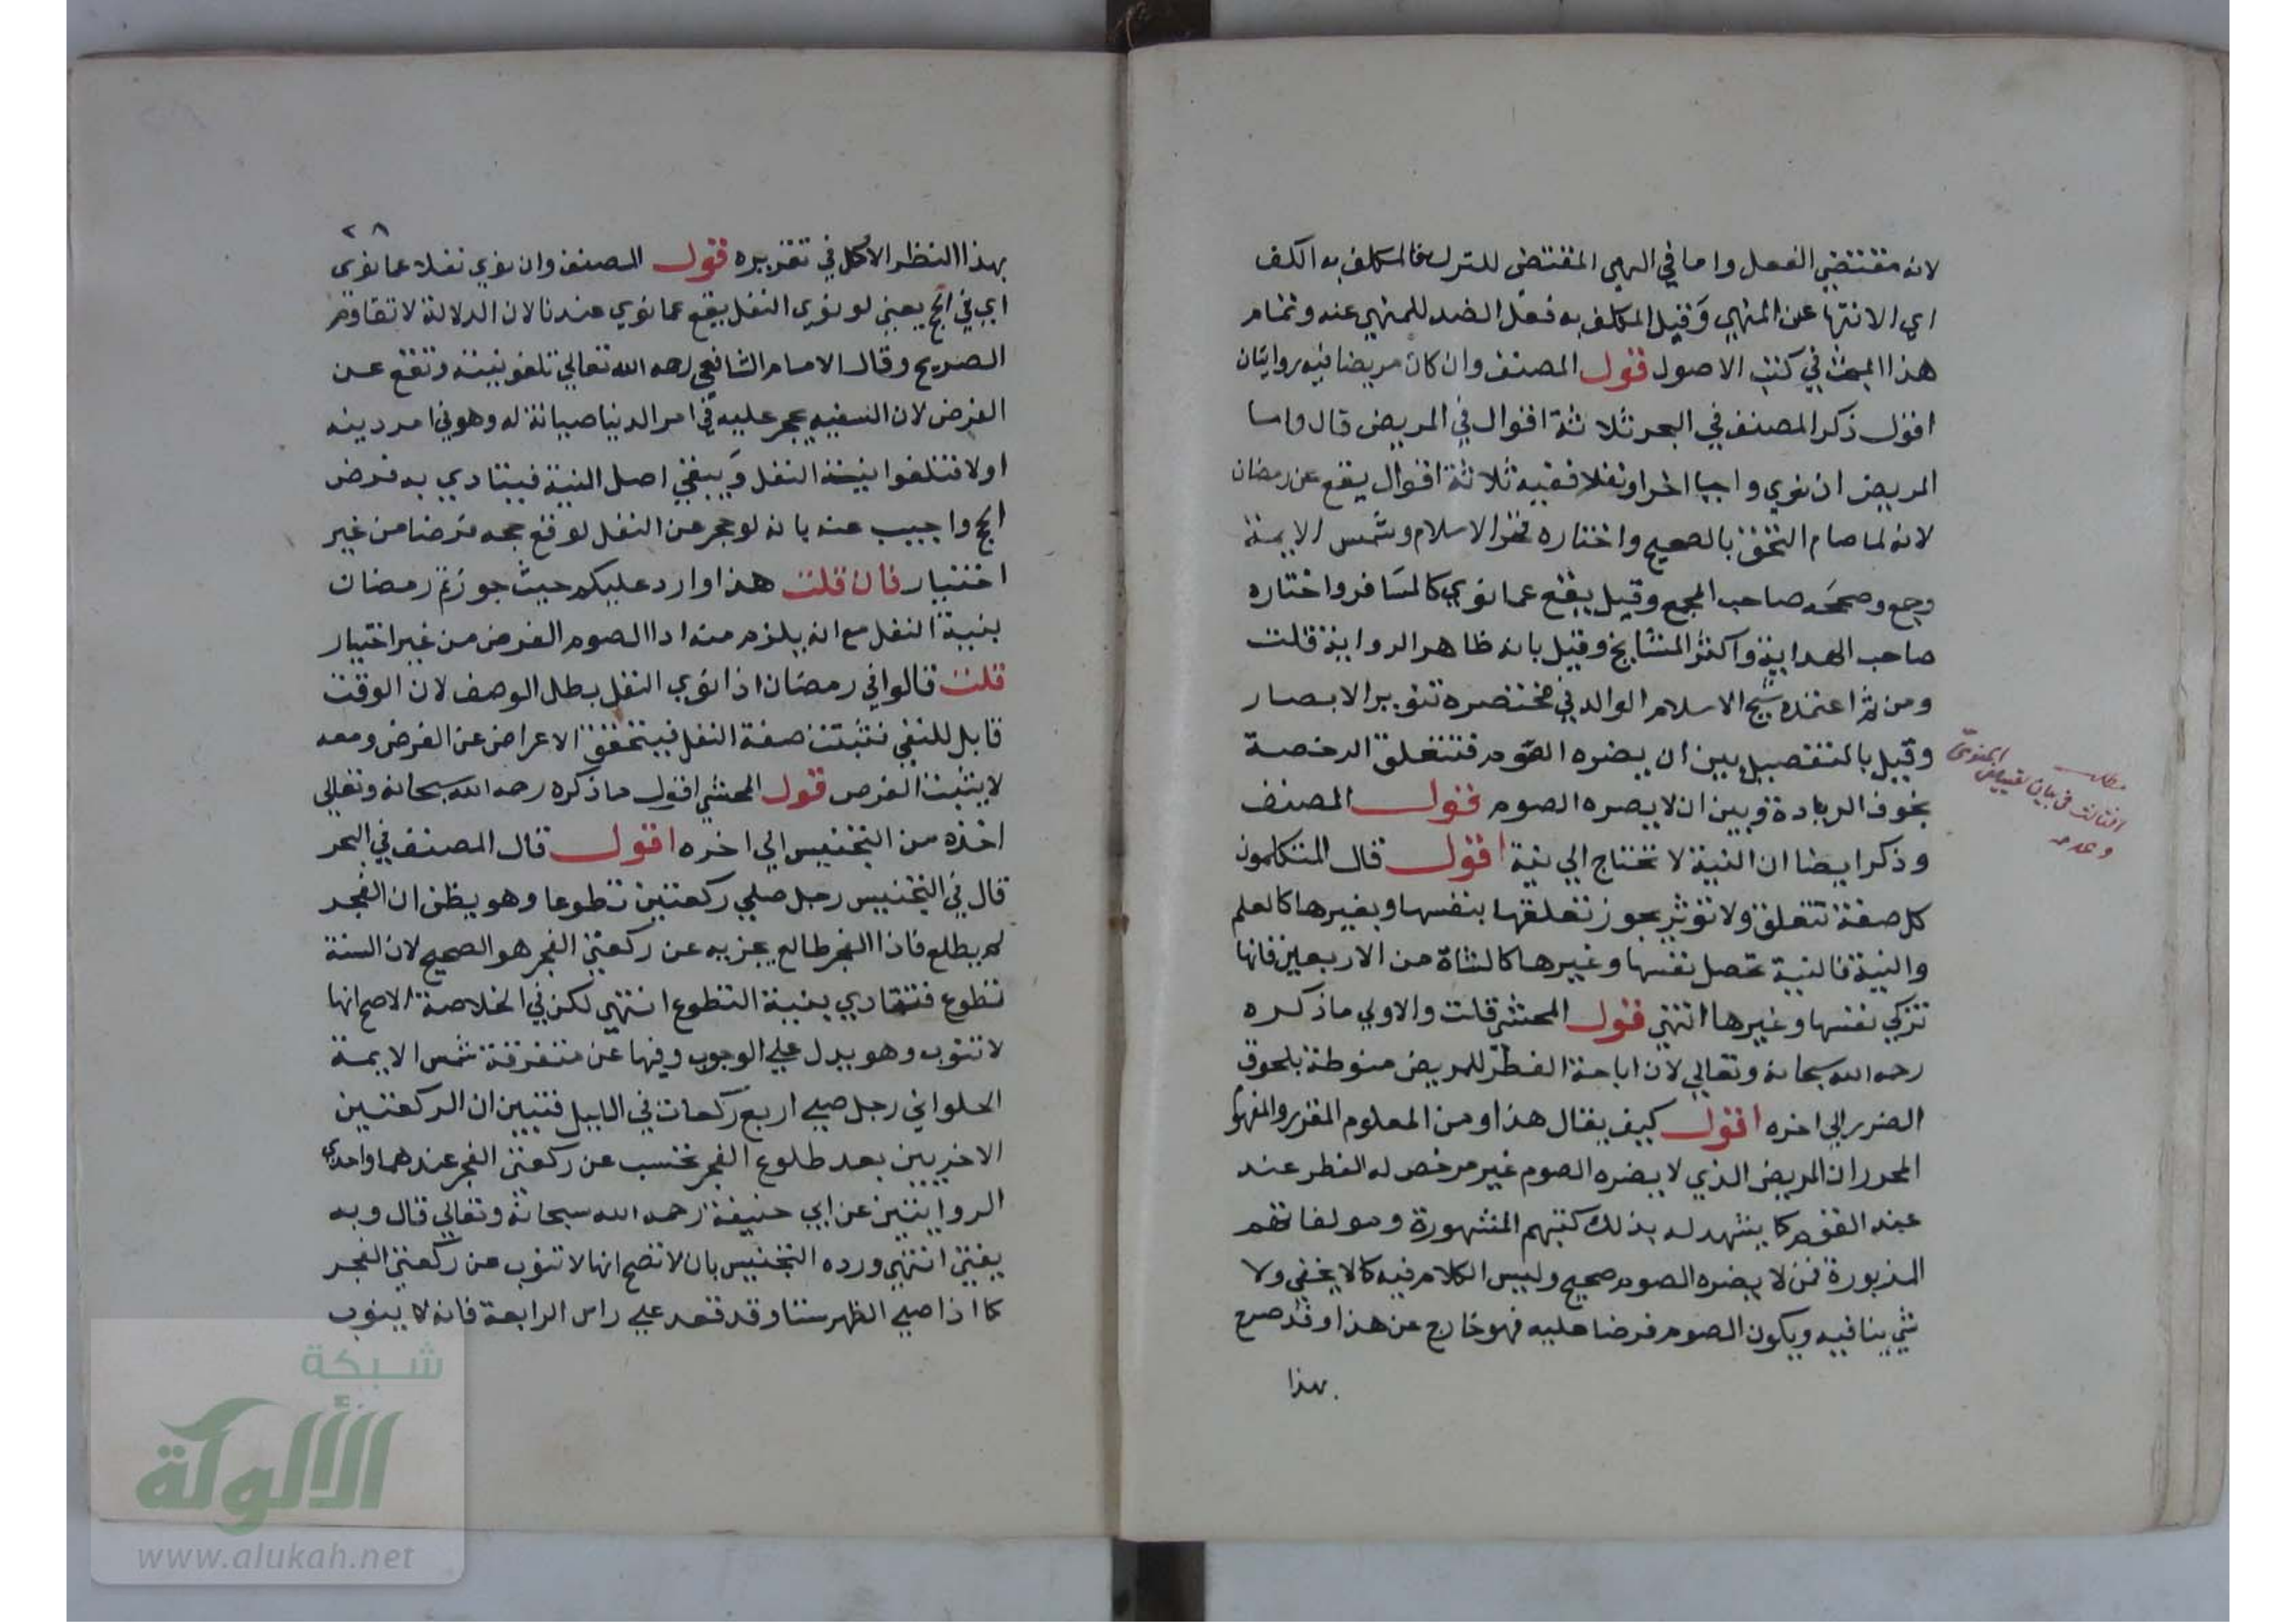 لانه مقتضي الفعل واما في النهي المقتضي للترك فالمكلف به الكف
اي الانتها عن المنهي وقيل المكلف به فعل الضد للمنهي عنه وتمام
هذا المبحث في كتب الاصول قول المصنف وان كان مريضا فيه روايتان
اقول ذكر المصنف في البحر ثلاثة اقوال في المريض قال واما
المريض ان نوي واجبا اخر او نفلا ففيه ثلاثة اقوال يقع عن رمضان
لانه لما صام التحق بالصحيح واختاره فخر الاسلام وشمس الايمة
وجمع وصححه صاحب المجمع وقيل يقع عما نوي كالمسافر واختاره
صاحب الهداية واكثر المشايخ وقيل بانه ظاهر الرواية قلت
ومن ثم اعتمده شيخ الاسلام الوالد في مختصره تنوير الابصار
وقيل بالتفصيل بين ان يضره الصوم فتتعلق الرخصة
بخوف الزيادة وبين ان لا يضره الصوم قول المصنف
وذكر ايضا ان النية لا تحتاج الي نية اقول قال المتكلمون
كل صفة تتعلق ولا تؤثر يجوز تعلقها بنفسها وبغيرها كالعلم
والنية فالنية تحصل نفسها وغيرها كالشاة من الاربعين فانها
تزكي نفسها وغيرها انتهي قول المحشي قلت والاولي ما ذكره
رحمه الله سبحانه وتعالي لان اباحة الفطر للمريض منوطة بلحوق
الضرر الي اخره اقول كيف يقال هذا ومن المعلوم المقرر والمفهوم
المحرر ان المريض الذي لا يضره الصوم غير مرخص له الفطر عند
عند القوم كما يشهد له بذلك كتبهم المشهورة ومولفاتهم
المزبورة فمن لا يضره الصوم صحيح وليس الكلام فيه كما لا يخفي ولا
شي ينافيه ويكون الصوم فرضا عليه فهو خارج عن هذا وقد صرح
بهذا
مطلب
في بيان
وعدمه
٢٨
بهذا النظر الاكمل في تقريره قول المصنف وان نوي نفلا عما نوي
اي في الحج يعني لو نوي النفل يقع عما نوي عندنا لان الدلالة لا تقاوم
الصريح وقال الامام الشافعي رحمه الله تعالي تلغو نيته وتقع عن
الفرض لان السفيه يحجر عليه في امر الدنيا صيانة له وهو في امر دينه
اولا فتلغوا نية النفل ويبقي اصل النية فيتادي به فرض
الحج واجيب عنه بانه لو حجر عن النفل لوقع حجه فرضا من غير
اختيار فان قلت هذا وارد عليكم حيث جوزتم رمضان
بنية النفل مع انه يلزم منه ادا الصوم الفرض من غير اختيار
قلت قالوا في رمضان اذا نوي النفل بطل الوصف لان الوقت
قابل للنفي فتثبت صفة النفل فيتحقق الاعراض عن الفرض ومعه
لا يثبت الفرض قول المحشي اقول ما ذكره رحمه الله سبحانه وتعالي
اخذه من التجنيس الي اخره اقول قال المصنف في البحر
قال في التجنيس رجل صلي ركعتين تطوعا وهو يظن ان الفجر
لم يطلع فاذا الفجر طالع يجزيه عن ركعتي الفجر هو الصحيح لان السنة
تطوع فتتادي بنية التطوع انتهي لكن في الخلاصة الاصح انها
لا تنوب وهو يدل علي الوجوب وفيها عن متفرقة شمس الايمة
الحلواني رجل صلي اربع ركعات في الليل فتبين ان الركعتين
الاخريين بعد طلوع الفجر تحتسب عن ركعتي الفجر عندهما واحدي
الروايتين عن ابي حنيفة رحمه الله سبحانه وتعالي قال وبه
يفتي انتهي ورده التجنيس بان لا تصح انها لا تنوب عن ركعتي الفجر
كما اذا صلي الظهر ستا وقد قعد علي راس الرابعة فانه لا ينوب
شبكة
الألوكة
www.alukah.net